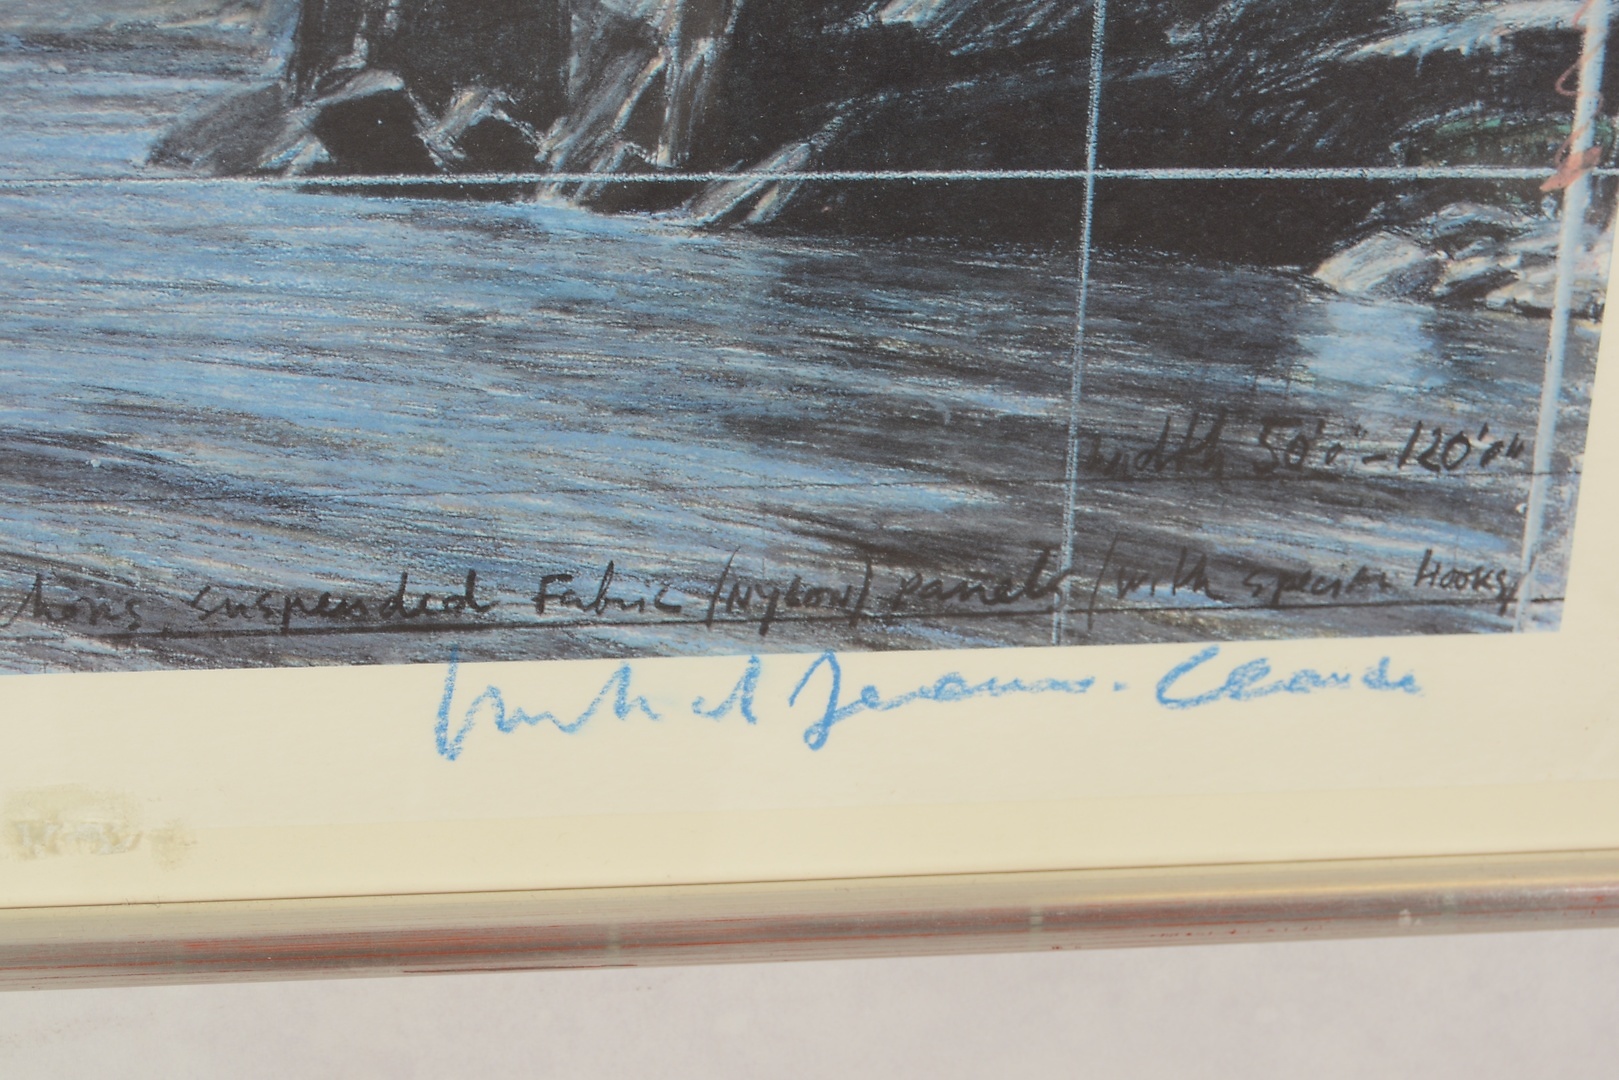 width 50'0" - 120'0"
suspended Fabric (NYLON) panels (with special Hooks)
Jeanne-Claude